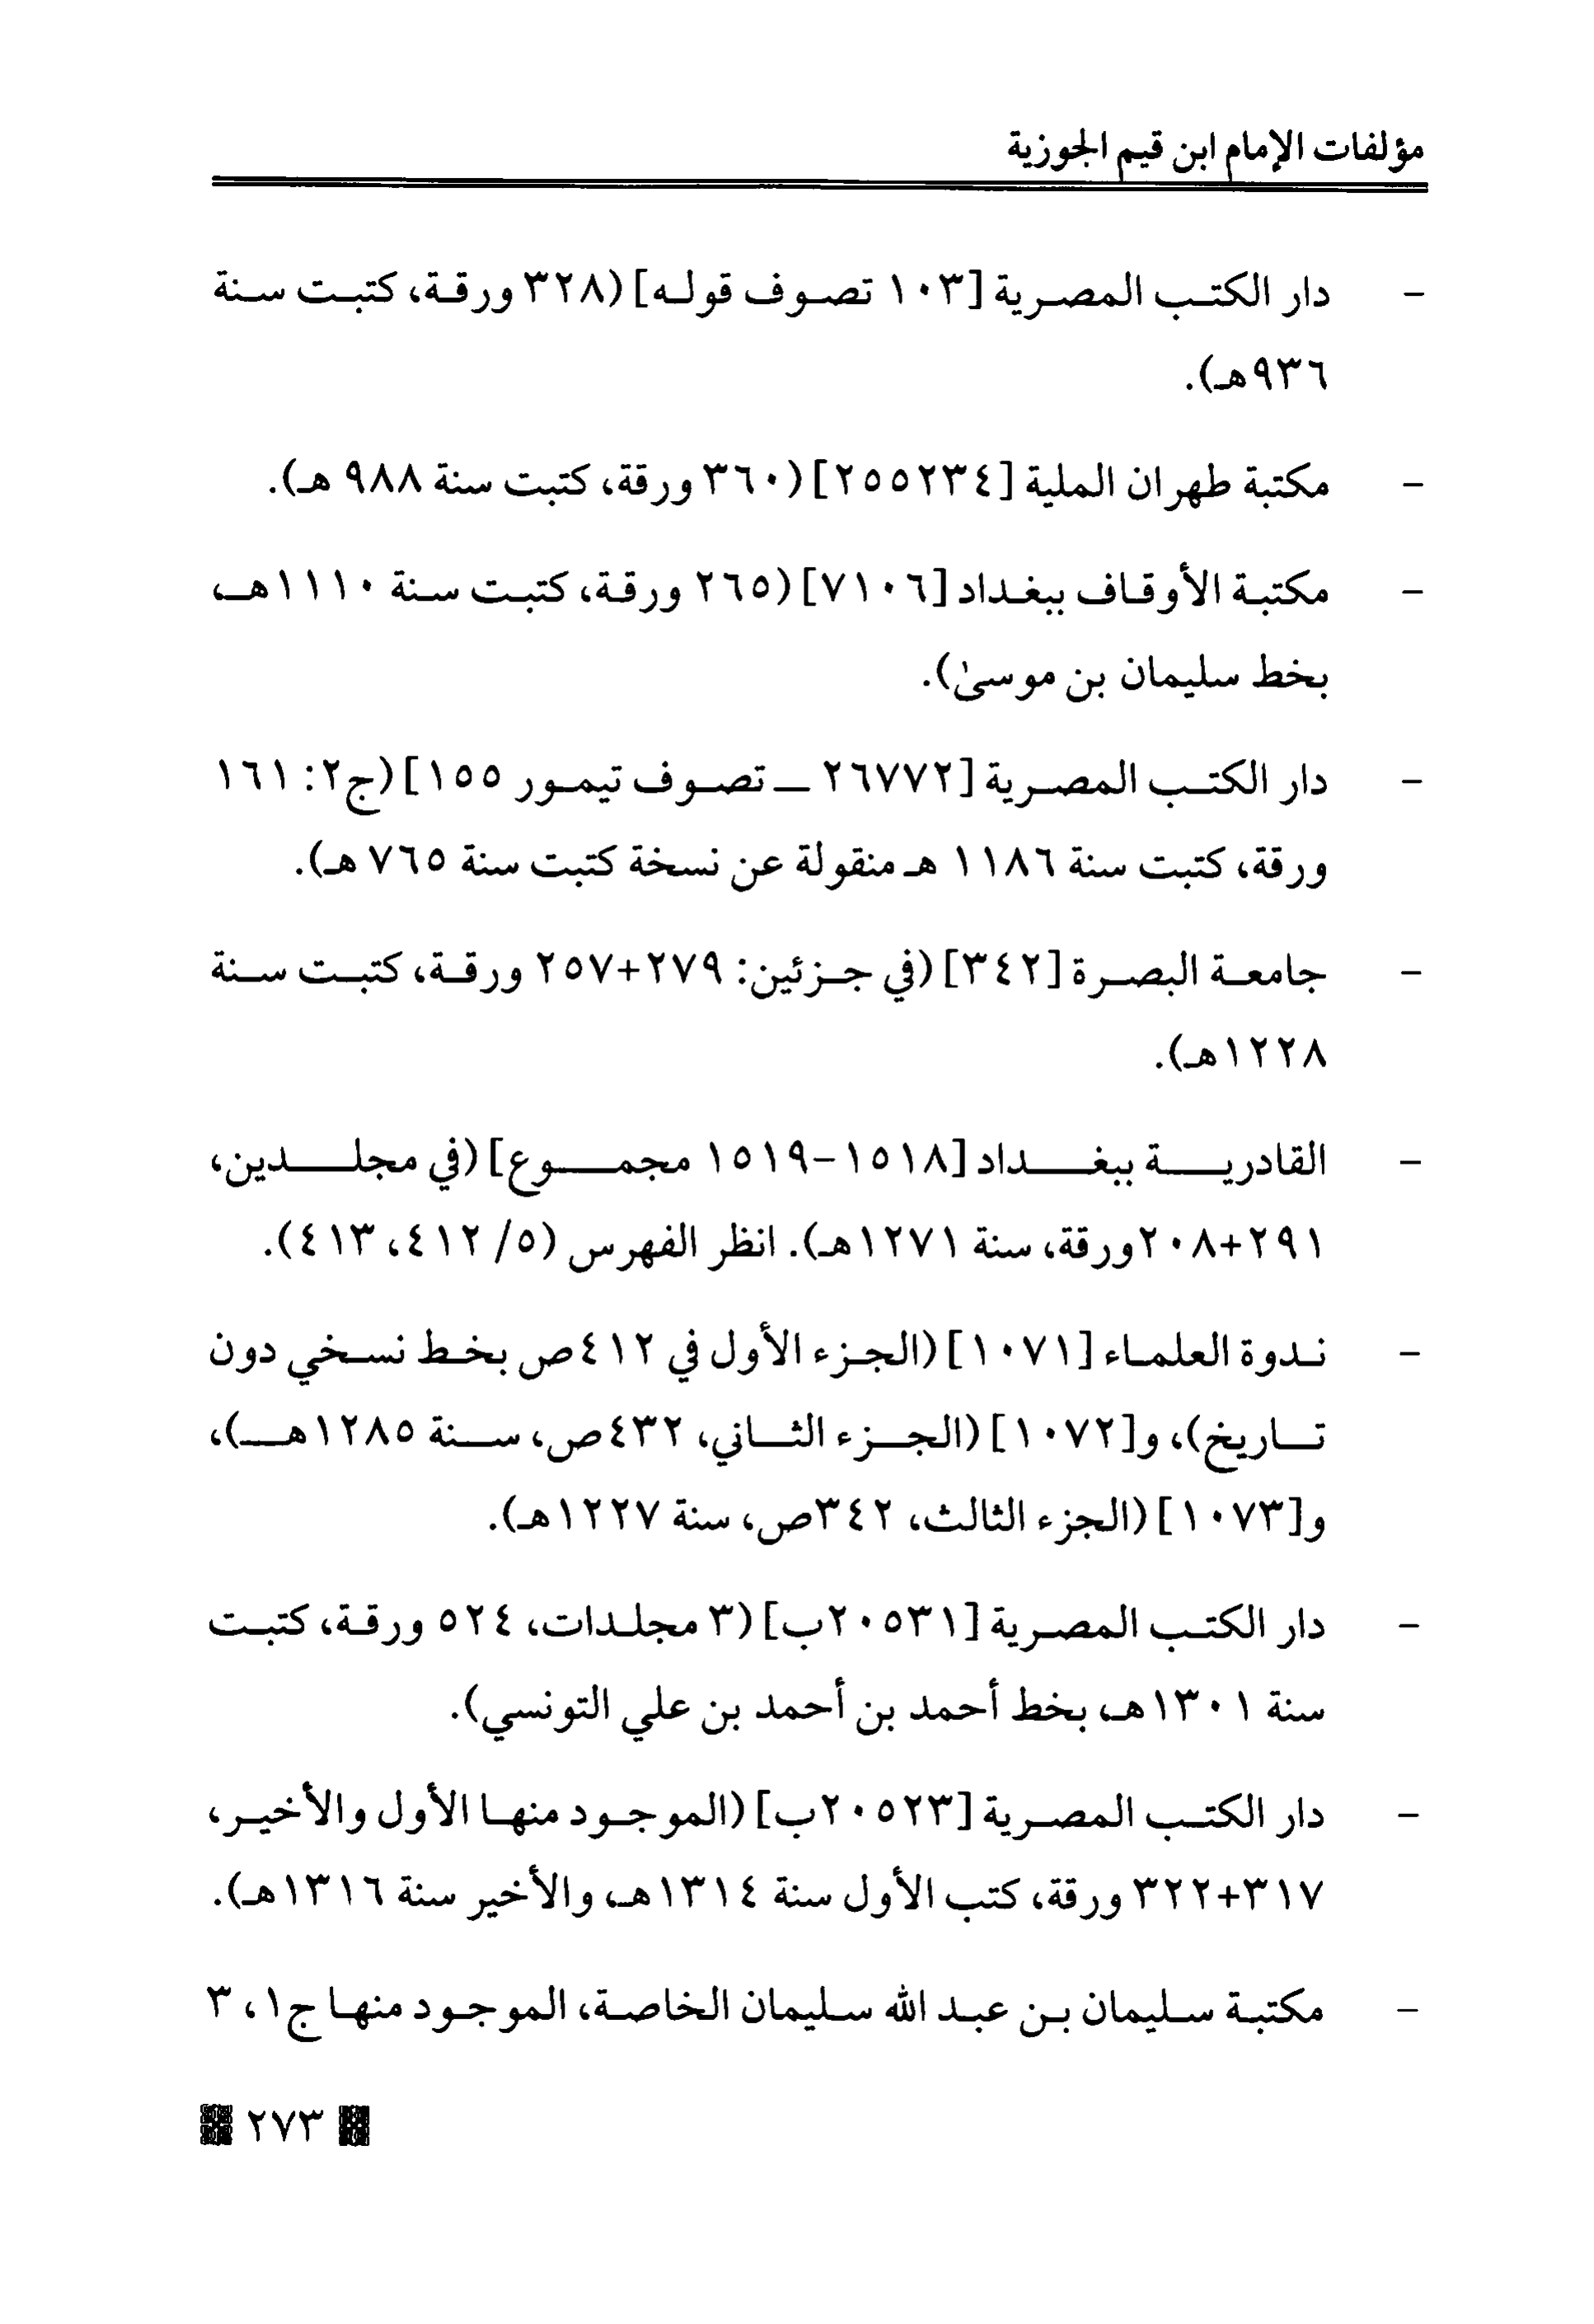 مؤلفات الإمام ابن قيم الجوزية
- دار الكتب المصرية [١٠٣ تصوف قوله] (٣٢٨ ورقة، كتبت سنة
٩٣٦هـ).
- مكتبة طهران الملية [٢٥٥٢٣٤] (٣٦٠ ورقة، كتبت سنة ٩٨٨ هـ).
- مكتبة الأوقاف ببغداد [٧١٠٦] (٢٦٥ ورقة، كتبت سنة ١١١٠هـ،
بخط سليمان بن موسىٰ).
- دار الكتب المصرية [٢٦٧٧٢ – تصوف تيمور ١٥٥] (ج٢: ١٦١
ورقة، كتبت سنة ١١٨٦ هـ منقولة عن نسخة كتبت سنة ٧٦٥ هـ).
- جامعة البصرة [٣٤٢] (في جزئين: ٢٧٩+٢٥٧ ورقة، كتبت سنة
١٢٢٨هـ).
- القادرية ببغداد [١٥١٨-١٥١٩ مجموع] (في مجلدين،
٢٩١+٢٠٨ورقة، سنة ١٢٧١هـ). انظر الفهرس (٥/ ٤١٢، ٤١٣).
- ندوة العلماء [١٠٧١] (الجزء الأول في ٤١٢ص بخط نسخي دون
تاريخ)، و[١٠٧٢] (الجزء الثاني، ٤٣٢ص، سنة ١٢٨٥هـ)،
و[١٠٧٣] (الجزء الثالث، ٣٤٢ص، سنة ١٢٢٧هـ).
- دار الكتب المصرية [٢٠٥٣١ب] (٣ مجلدات، ٥٢٤ ورقة، كتبت
سنة ١٣٠١هـ، بخط أحمد بن أحمد بن علي التونسي).
- دار الكتب المصرية [٢٠٥٢٣ب] (الموجود منها الأول والأخير،
٣١٧+٣٢٢ ورقة، كتب الأول سنة ١٣١٤هـ، والأخير سنة ١٣١٦هـ).
- مكتبة سليمان بن عبد الله سليمان الخاصة، الموجود منها ج١، ٣
٢٧٣